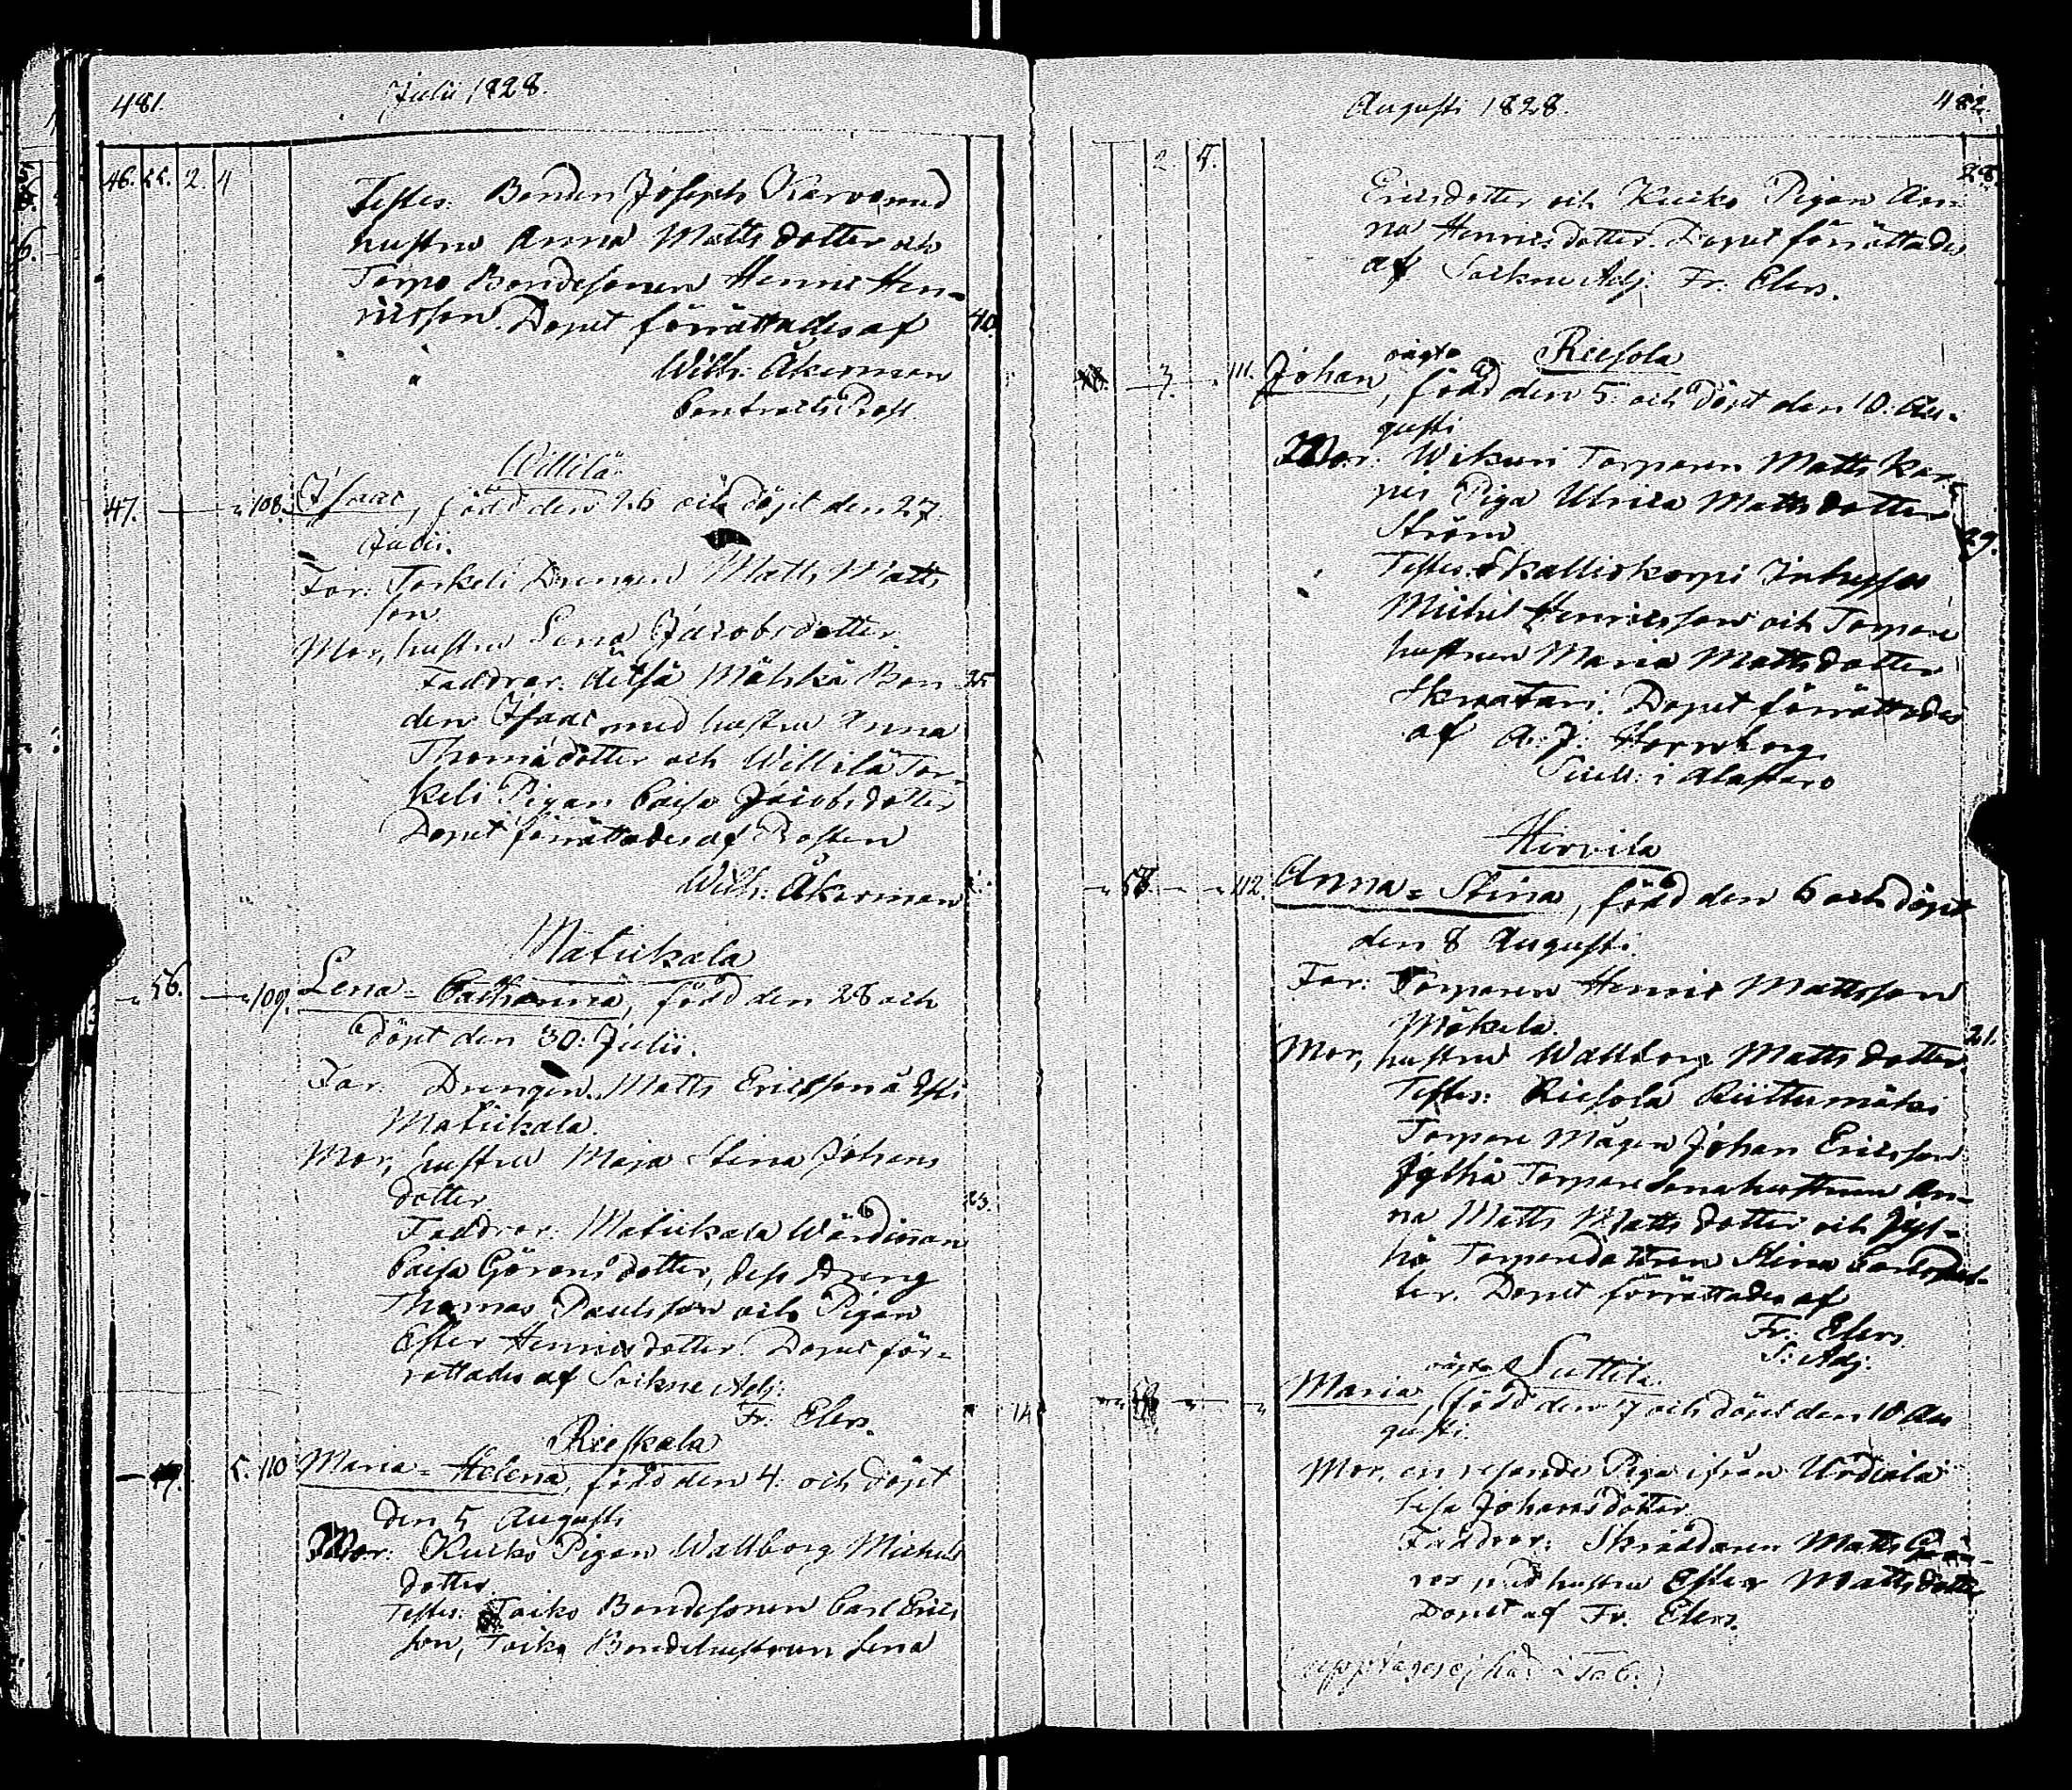 481.
Julii 1828.
46. 22. 2. 4
Testes: Bonden Joseph Karvo med
hustru Anna Matts dotter och
Torpo Bondesonen Henric Hen-
ricsson. Dopet förrättades af
40.
Wilh: Åkerman
Contracts Prost
Willilä
47. 108. Isaac, född den 26 och döpt den 27
Julii.
Far: Torkeli Drengen Matts Matts
son
Mor, hustru Lena Jacobsdotter.
Faddrar: Mähkä Bon
25
den Isaac med hustru Anna
Thomædotter och Willilä Tor-
keli Pigan Caisa Jacobsdotter
Dopet förrättades af Prosten
Wilh: Åkerman
Matickala
56. 109. Lena-Catharina, född den 28 och
döpt den 30: Julii.
Far: Drengen Matts Ericsson å
Matickala.
Mor, hustru Maja Stina Johans
dotter
23.
Faddrar: Matickala Wärdinnan
Caisa Görans dotter, dess dreng
Thomas Paulsson och Pigan
Ester Henricsdotter. Dopet för-
rättades af Sockne Adj:
Fr: Elers.
Rieskala
5. 110 Maria-Helena, född den 4: och döpt
den 5 Augusti
Mor: Kuiko Pigan Wallborg Michels
dotter.
Testes: Toiko Bondesonen Carl Erics
son, Toiko Bondehustrun Lena
Augusti 1828.
482.
2. 5.
28.
Ericsdotter och Kuiko Pigan An-
na Henricsdotter. Dopet förrättades
af Sockne Adj: Fr: Elers.
Riesola
3. 111. Johan, oägta född den 5 och döpt den 10: Au-
gusti
Mor: Wikuri Torparen Matts Kar-
pes Piga Ulrica Matts dotter
Ström
29.
Testes: Kalliokorpi Inhyses
Michel Henricsson och Torpare
hustrun Maria Matts dotter
Skraatari. Dopet förrättades
af A: J: Hornborg
i Alastaro
Hirvila
58. 112. Anna-Stina, född den 6 och döpt
den 8 Augusti.
Far: Torparen Henric Mattsson
Mäkelä.
21.
Mor, hustru Wallborg Matts dotter.
Testes: Riesola Riittumäki
Torpare Mågen Johan Ericsson
Jylhä Torpare Sonahustrun An-
na Matts Matts dotter och Jyl-
hä Torparedottren Stina Carlsdot-
ter. Dopet förrättades af
Fr: Elers
S: Adj:
Suttila.
Maria, oägta född den 7 och döpt den 10 Au
gusti.
Mor, en resande Piga ifrån Urdiala
Lisa Johansdotter
Faddrar: Skräddaren Matts
med hustru Ester Mattsdotter
Dopet af Fr: Elers.
(upptages ej här i Tab:)